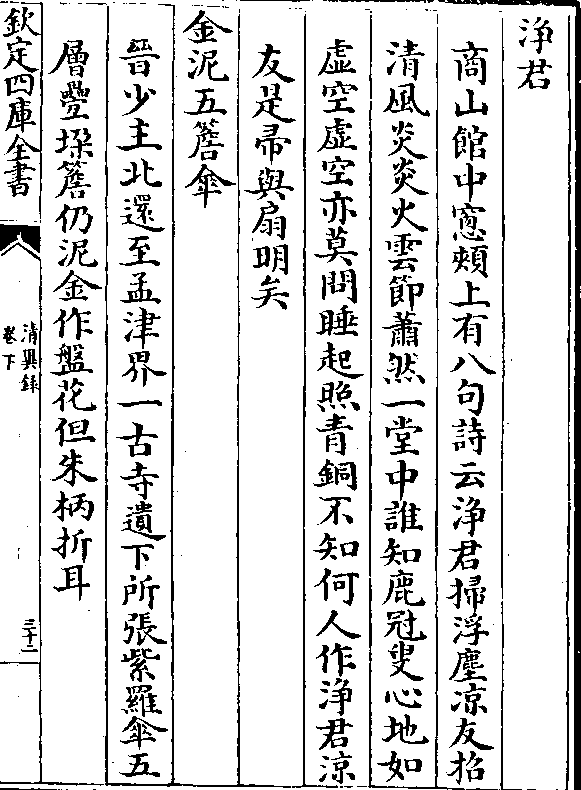 浄君
商山館中窻頰上有八句詩云浄君掃浮塵凉友招
清風炎炎火雲節蕭然一堂中誰知鹿冠叟心地如
虚空虚空亦莫問睡起照青銅不知何人作浄君凉
友是帚與扇明矣
金泥五簷傘
晉少主北還至孟津界一古寺遺下所張紫羅傘五
層疊垜簷仍泥金作盤花但朱柄折耳
欽定四庫全書
清異録
卷下
三十二